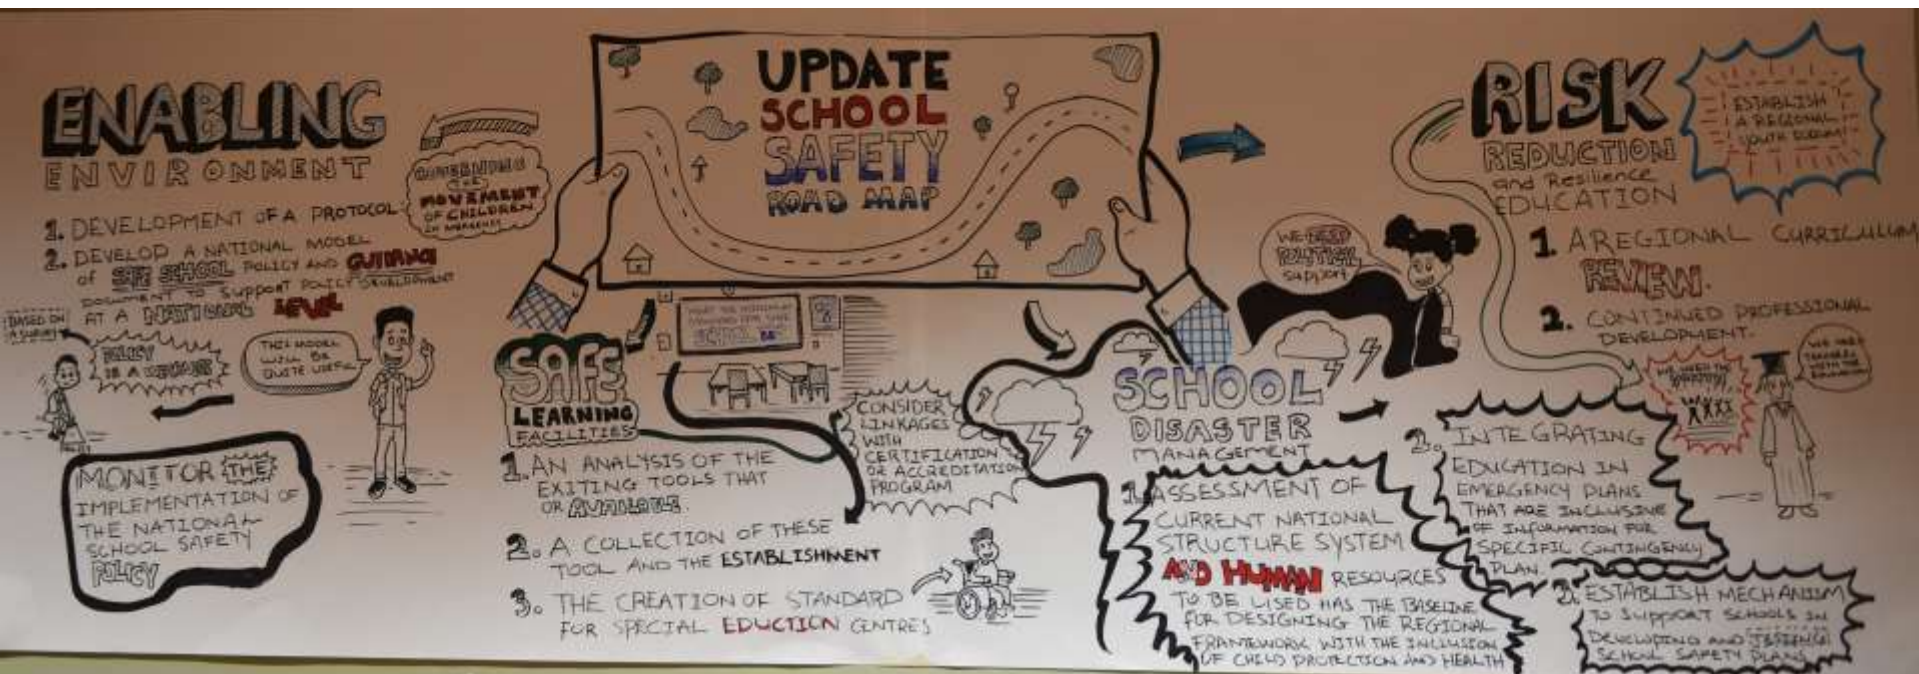 ENABLING
ENVIRONMENT
1. DEVELOPMENT OF A PROTOCOL
GOVERNING
THE
MOVEMENT
OF CHILDREN
2. DEVELOP A NATIONAL MODEL
of SAFE SCHOOL POLICY AND
DOCUMENT TO SUPPORT POLICY DEVELOPMENT
AT A NATIONAL LEVEL
BASED ON
A SURVEY
POLICY
IS A
THIS MODEL
WILL BE
QUITE USEFUL
MONITOR THE
IMPLEMENTATION OF
THE NATIONAL
SCHOOL SAFETY
POLICY
UPDATE
SCHOOL
SAFETY
ROAD MAP
SAFE
LEARNING
FACILITIES
1. AN ANALYSIS OF THE
EXITING TOOLS THAT
OR AVAILABLE
2. A COLLECTION OF THESE
TOOL AND THE ESTABLISHMENT
3. THE CREATION OF STANDARD
FOR SPECIAL EDUCTION CENTRES
SCHOOL
CONSIDER
LINKAGES
WITH
CERTIFICATION
OR ACCREDITATION
PROGRAM
WE NEED
POLITICAL
support
SCHOOL
DISASTER
MANAGEMENT
1. ASSESSMENT OF
CURRENT NATIONAL
STRUCTURE SYSTEM
AND HUMAN RESOURCES
TO BE USED HAS THE BASELINE
FOR DESIGNING THE REGIONAL
FRAMEWORK WITH THE INCLUSION
OF CHILD PROTECTION AND HEALTH
2. INTEGRATING
EDUCATION IN
EMERGENCY PLANS
THAT ARE INCLUSIVE
OF INFORMATION FOR
SPECIFIC CONTINGENCY
PLAN.
3. ESTABLISH MECHANISM
TO SUPPORT SCHOOLS IN
DEVELOPING AND TESTING
SCHOOL SAFETY PLANS
RISK
REDUCTION
and Resilience
EDUCATION
ESTABLISH
A REGIONAL
YOUTH FORUM!
1. A REGIONAL CURRICULUM
REVIEW.
2. CONTINUED PROFESSIONAL
DEVELOPMENT.